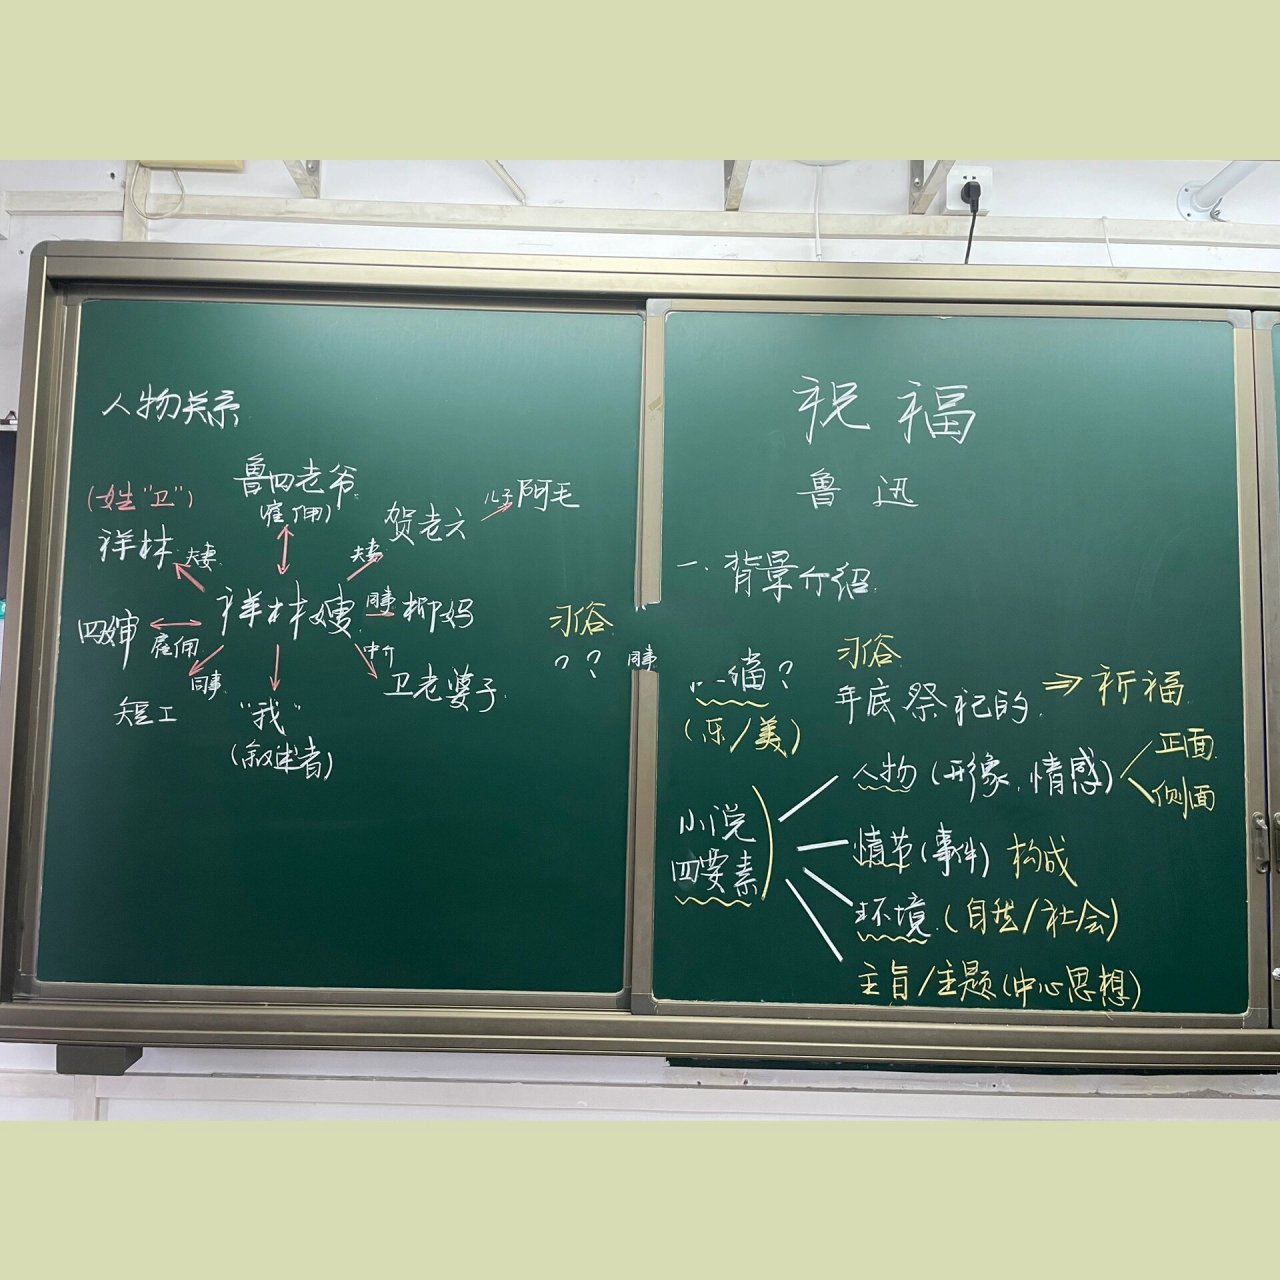 人物关系
鲁四老爷
(雇佣)
(姓"卫")
祥林
夫妻
夫妻
贺老六
儿子
阿毛
四婶
雇佣
祥林嫂
同事
柳妈
同事
短工
中介
卫老婆子
"我"
(叙述者)
习俗
? ?
同事
祝福
鲁迅
一、背景介绍
习俗
年底祭祀的
⇒祈福
(乐/美)
小说
四要素
人物(形象、情感)
正面
侧面
情节(事件) 构成
环境(自然/社会)
主旨/主题(中心思想)